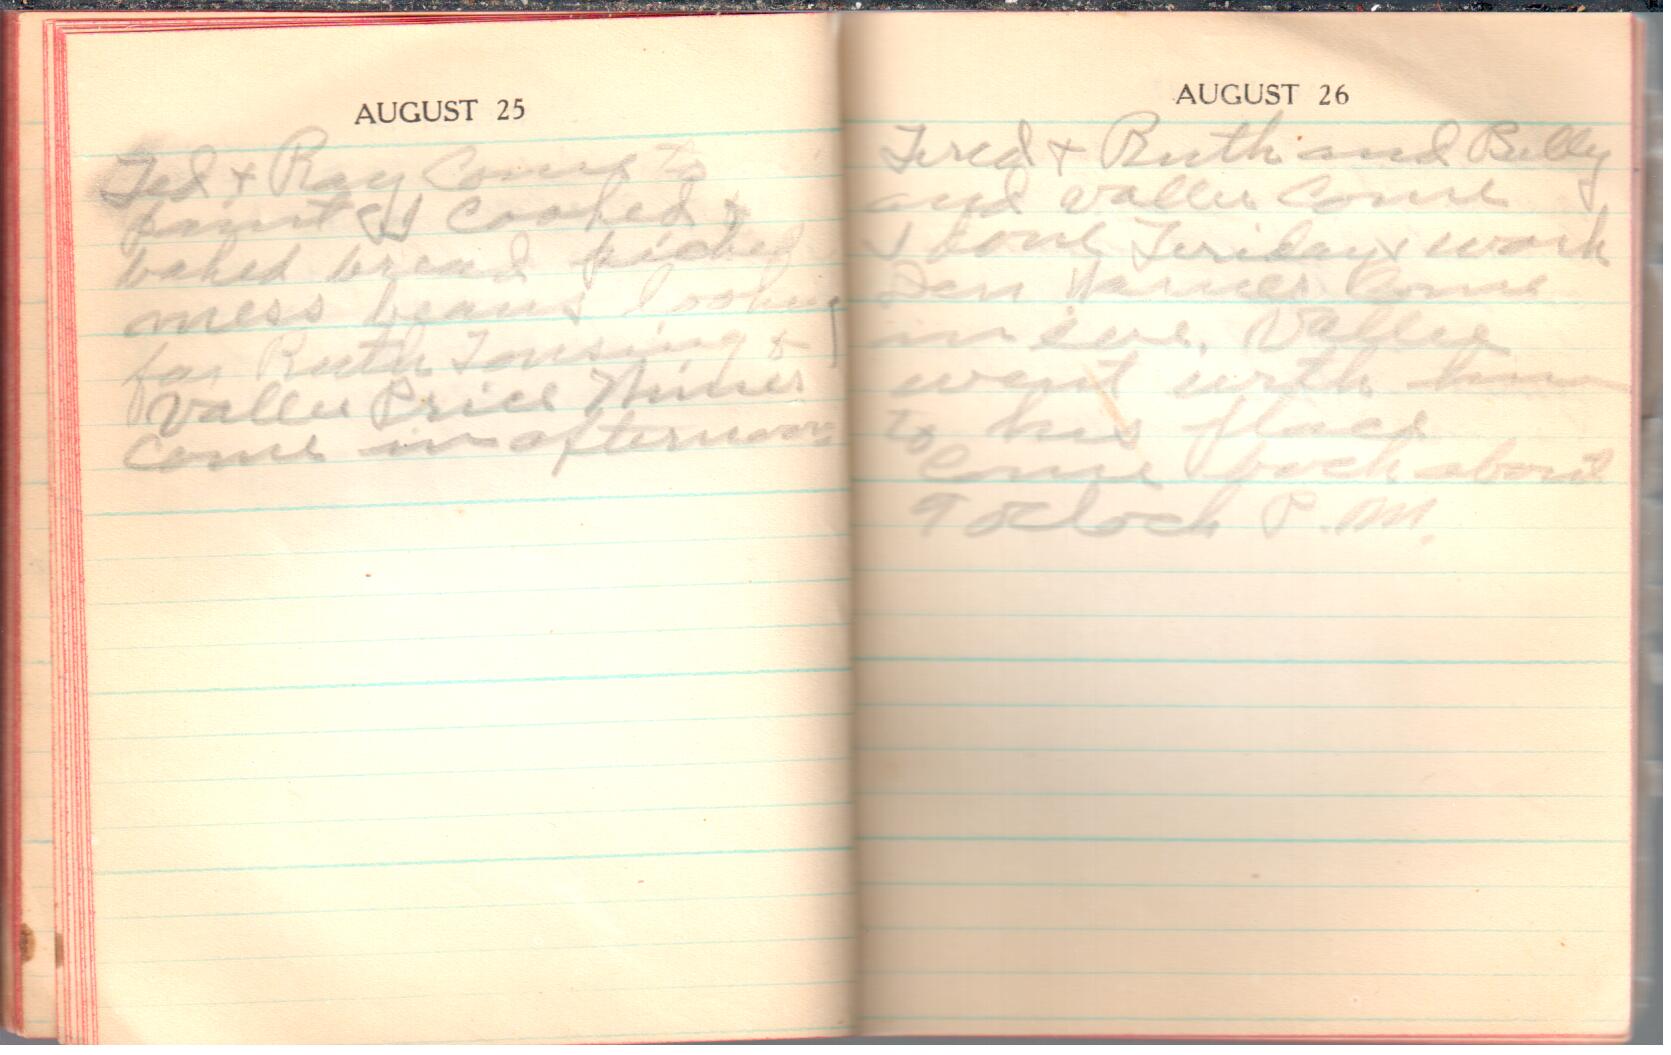 AUGUST 25
Ted & Ray Come to
paint I cooked &
baked bread picked
mess beans looking
for Ruth Tousing &
Vallee Price Miner
come in afternoon
AUGUST 26
Fred & Ruth and Billy
and Vallee Come
I done Friday work
Den Come
in eve. Vallee
went with him
to his place
Come back about
9 oclock P.M.